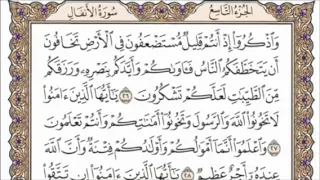 الجزء التاسع
سورة الأنفال
وَٱذْكُرُوٓا۟ إِذْ أَنتُمْ قَلِيلٌ مُّسْتَضْعَفُونَ فِى ٱلْأَرْضِ تَخَافُونَ
أَن يَتَخَطَّفَكُمُ ٱلنَّاسُ فَـَٔاوَىٰكُمْ وَأَيَّدَكُم بِنَصْرِهِۦ وَرَزَقَكُم
مِّنَ ٱلطَّيِّبَٰتِ لَعَلَّكُمْ تَشْكُرُونَ ٢٦ يَٰٓأَيُّهَا ٱلَّذِينَ ءَامَنُوا۟
لَا تَخُونُوا۟ ٱللَّهَ وَٱلرَّسُولَ وَتَخُونُوٓا۟ أَمَٰنَٰتِكُمْ وَأَنتُمْ تَعْلَمُونَ
٢٧ وَٱعْلَمُوٓا۟ أَنَّمَآ أَمْوَٰلُكُمْ وَأَوْلَٰدُكُمْ فِتْنَةٌ وَأَنَّ ٱللَّهَ
عِندَهُۥٓ أَجْرٌ عَظِيمٌ ٢٨ يَٰٓأَيُّهَا ٱلَّذِينَ ءَامَنُوٓا۟ إِن تَتَّقُوا۟